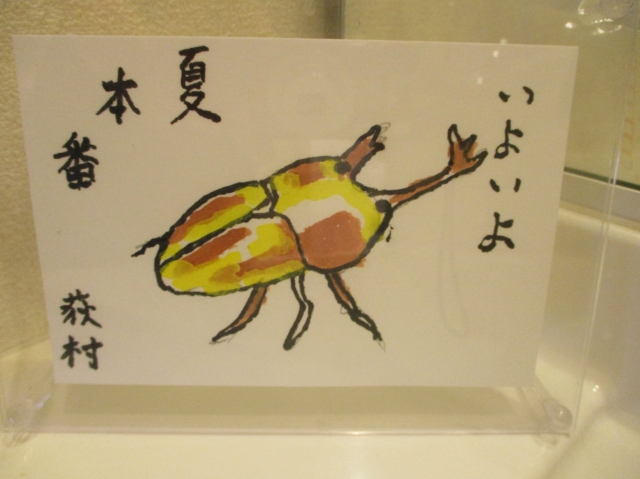 いよいよ
夏
本
番
荻村